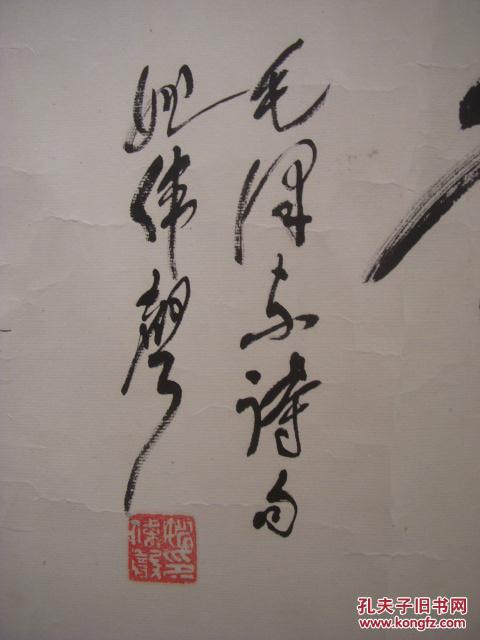 毛泽东诗句
姚伟聲
孔夫子旧书网
www.kongfz.com